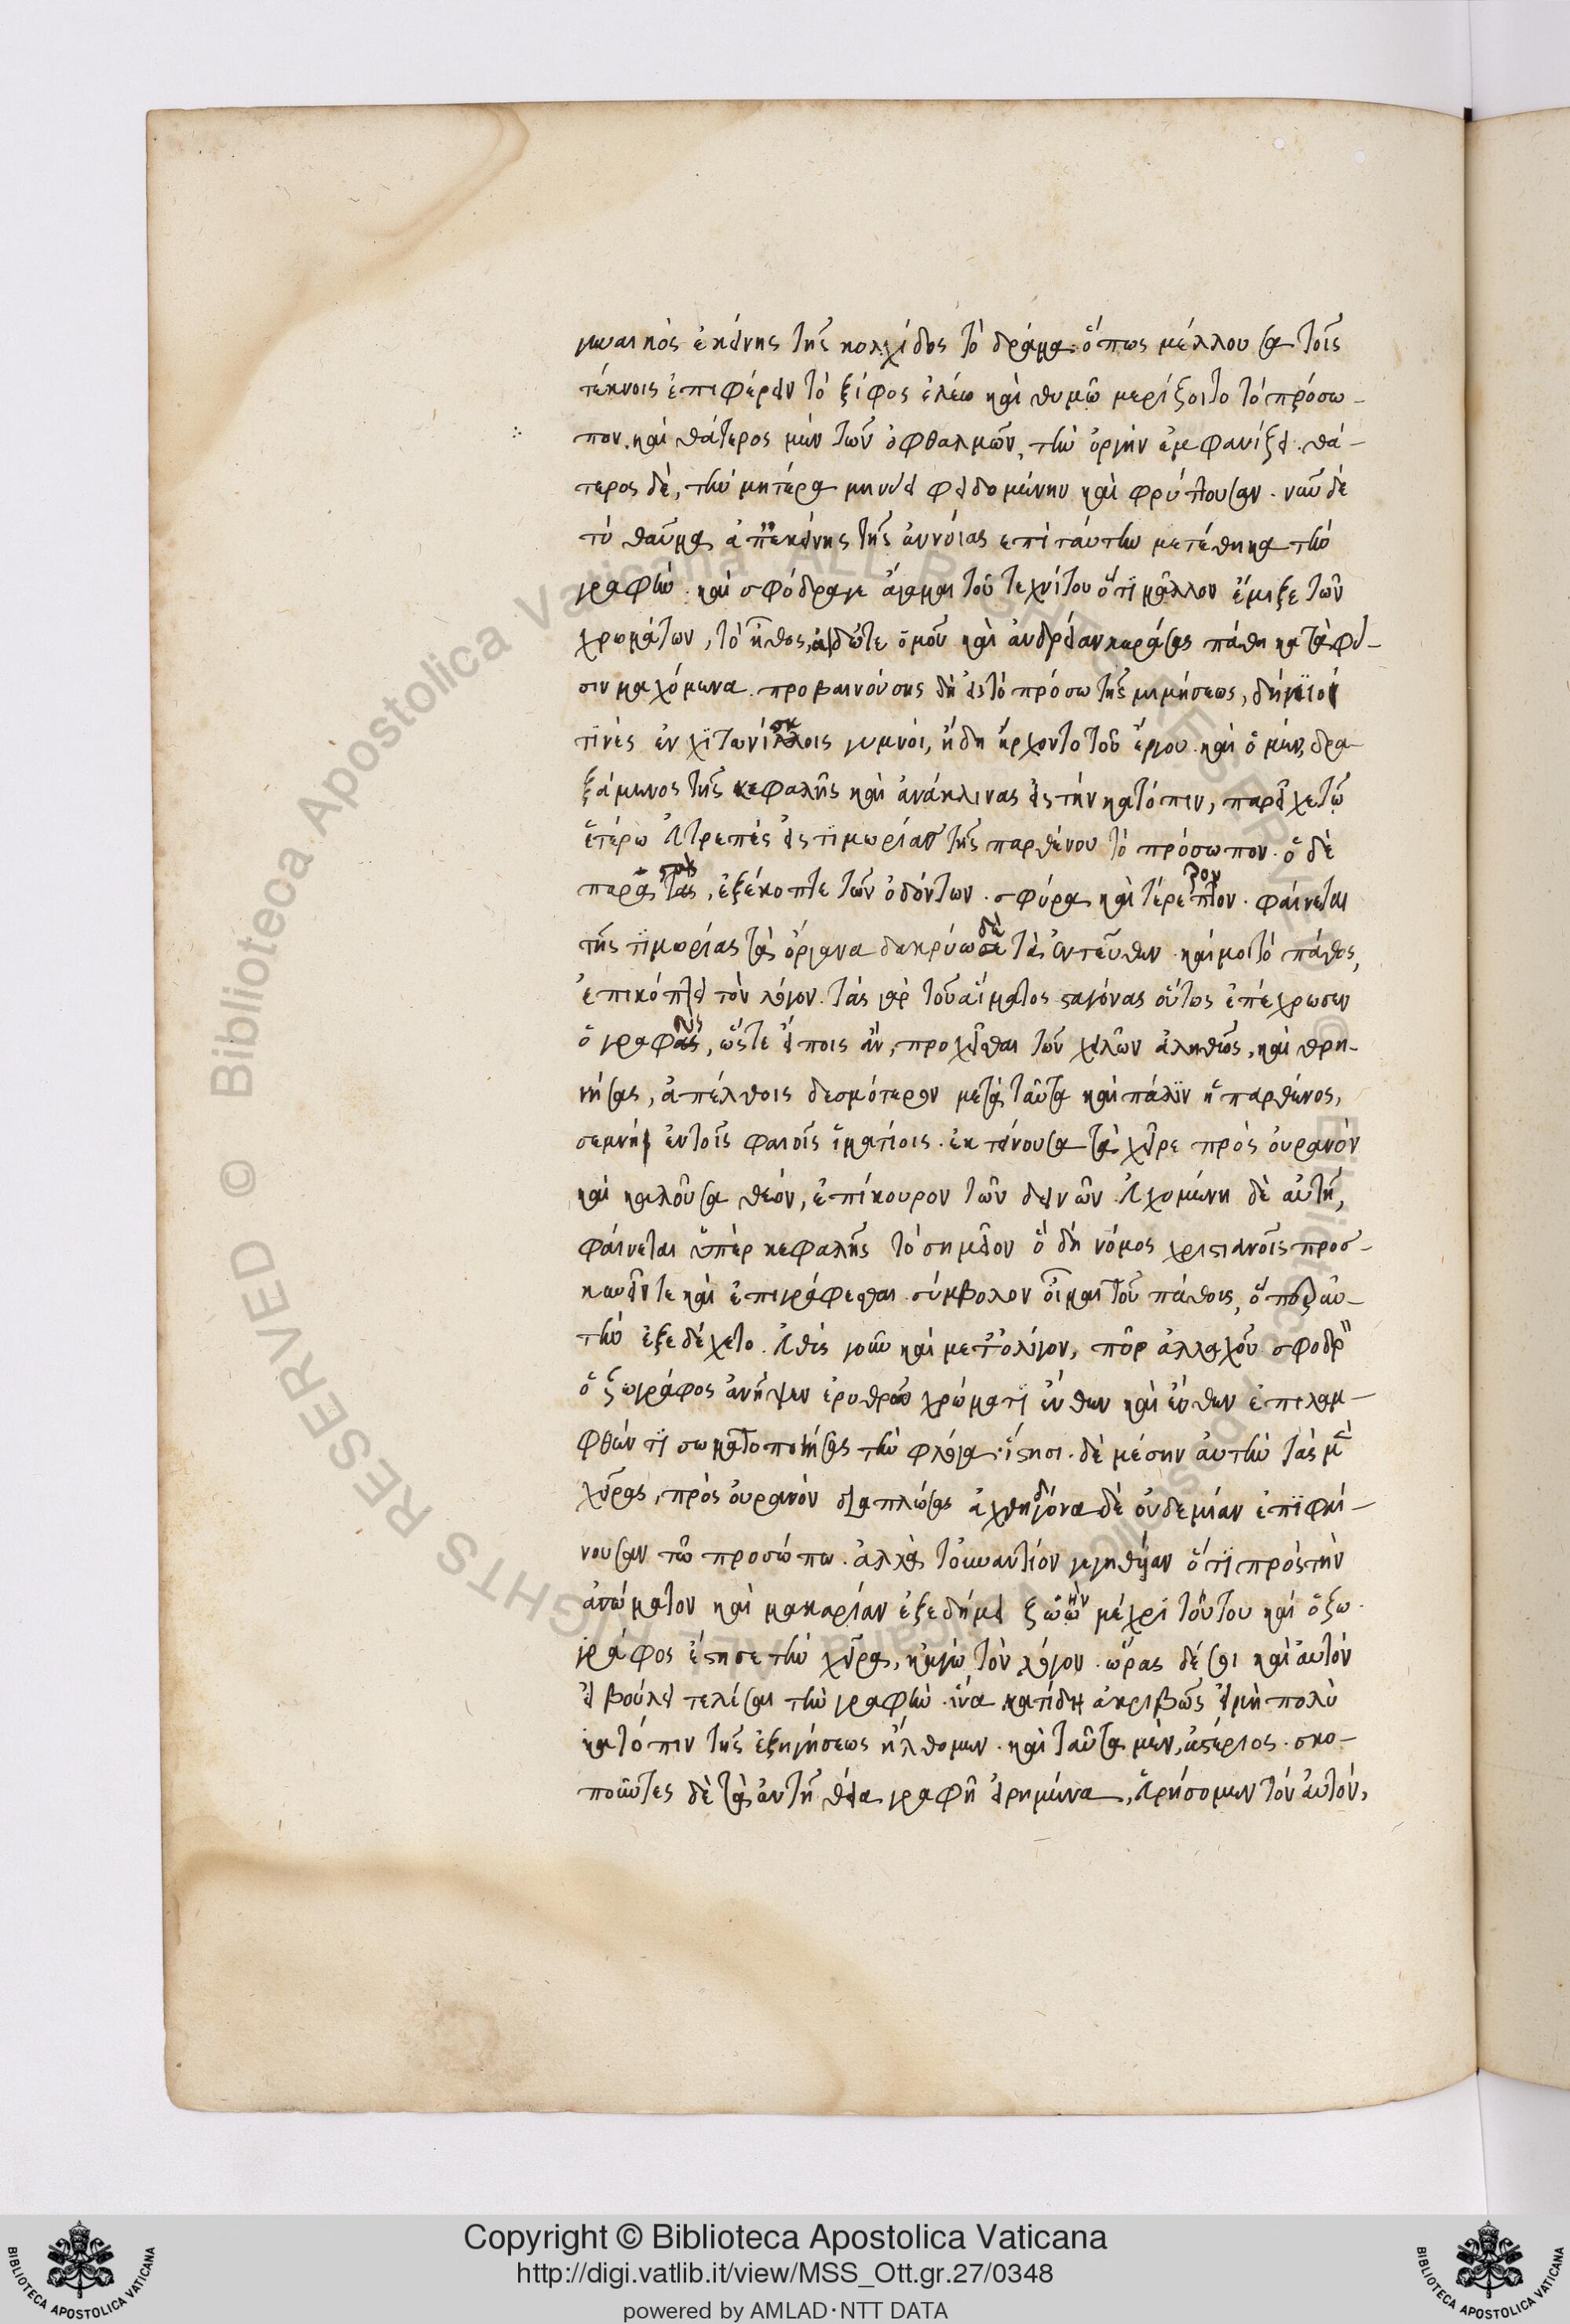 γυναικὸς ἐκείνης τῆς κολχίδος τὸ δράμα· ὅπως μέλλουσα τοῖς
τέκνοις ἐπιφέρειν τὸ ξίφος ἐλέω καὶ θυμῶ μερίζοιτο τὸ πρόσω-
πον. καὶ θάτερος μὲν τῶν ὀφθαλμῶν, τὴν ὀργὴν ἐμφανίζει. θά-
τερος δὲ, τὴν μητέρα μηνύει φειδομένην καὶ φρύττουσαν. νῦν δὲ
τὸ θαῦμα ἀπ' ἐκείνης τῆς ἐννοίας ἐπὶ ταύτην μετέθηκα τὴν
γραφὴν. καὶ σφόδραγε ἄγαμαι τοῦ τεχνίτου ὅτι μᾶλλον ἔμιξε τῶν
χρωμάτων, τὸ ἦθος, αἰδῶτε ὁμοῦ καὶ ἀνδρείαν κεράσας πάθη κατὰ φύ-
σιν μαχόμενα. προβαινούσης δὴ εἰς τὸ πρόσω τῆς μιμήσεως, δήμιοι
τινὲς ἐν χιτωνίσκοις γυμνοί, ἤδη ἤρχοντο τοῦ ἔργου. καὶ ὁ μὲν, δρα-
ξάμενος τῆς κεφαλῆς καὶ ἀνάκλινας εἰς τὴν κατόπιν, παρεῖχε τῶ
ἑτέρω εὐτρεπὲς εἰς τιμωρίαν τῆς παρθένου τὸ πρόσωπον. ὁ δὲ
παραστὰς, ἐξέκοπτε τῶν ὀδόντων. σφύρα καὶ τέρετρον. φαίνεται
τῆς τιμωρίας τὰ ὄργανα δακρύω δὲ τὰ ἐντεῦθεν. καί μοι τὸ πάθος,
ἐπικόπτει τὸν λόγον. τὰς γὰρ τοῦ αἵματος σταγόνας οὕτως ἐπέχρωσεν
ὁ γραφεὺς, ὥστε εἴποις ἂν, προχεῖσθαι τῶν χειλῶν ἀληθῶς, καὶ θρη-
νήσας, ἀπέλθοις δεσμότερον μετὰ ταῦτα καὶ πάλιν ἡ παρθένος,
σεμνὴ ἐν τοῖς φαιοῖς ἱματίοις. ἐκτείνουσα τὰ χεῖρε πρὸς οὐρανὸν
καὶ καλοῦσα θεόν, ἐπίκουρον τῶν δεινῶν. εὐχομένη δὲ αὐτῇ,
φαίνεται ὑπὲρ κεφαλῆς τὸ σημεῖον ὃ δὴ νόμος χριστιανοῖς προσ-
κυνεῖν τε καὶ ἐπιγράφεσθαι. σύμβολον οἶμαι τοῦ πάθους, ὅπερ αὐ-
τὴν ἐξεδέχετο. εὐθὺς γοῦν καὶ μετ' ὀλίγον, πῦρ ἀλλαχοῦ σφοδρ
ὁ ζωγράφος ἀνῆψεν ἐρυθρῶ χρώματι ἔνθεν καὶ ἔνθεν ἐπιλαμ-
φθέντι σωματοποιήσας τὴν φλόγα. ἵστησι. δὲ μέσην αὐτὴν τὰς μὲν
χεῖρας, πρὸς οὐρανὸν διαπλώσας ἀχθηδόνα δὲ οὐδεμίαν ἐπιφαί-
νουσαν τῶ προσώπω. ἀλλὰ τὸ ἐναντίον γεγηθυῖαν ὅτι πρὸς τὴν
ἀσώματον καὶ μακαρίαν ἐξεδήμει ζωὴν μέχρι τούτου καὶ ὁ ζω-
γράφος ἔστησε τὴν χεῖρα, κἀγὼ τὸν λόγον. ὥρας δέ σοι καὶ αὐτὸν
εἰ βούλει τελέσαι τὴν γραφὴν. ἵνα κατίδῃ ἀκριβῶς εἰ μὴ πολὺ
κατόπιν τῆς ἐξηγήσεως ἤλθομεν. καὶ ταῦτα μὲν, ἀστέριος. σκο-
ποῦντες δὲ τὰ ἐν τῇ θεία γραφῆ εἰρημένα, εὑρήσομεν τὸν αὐτόν,